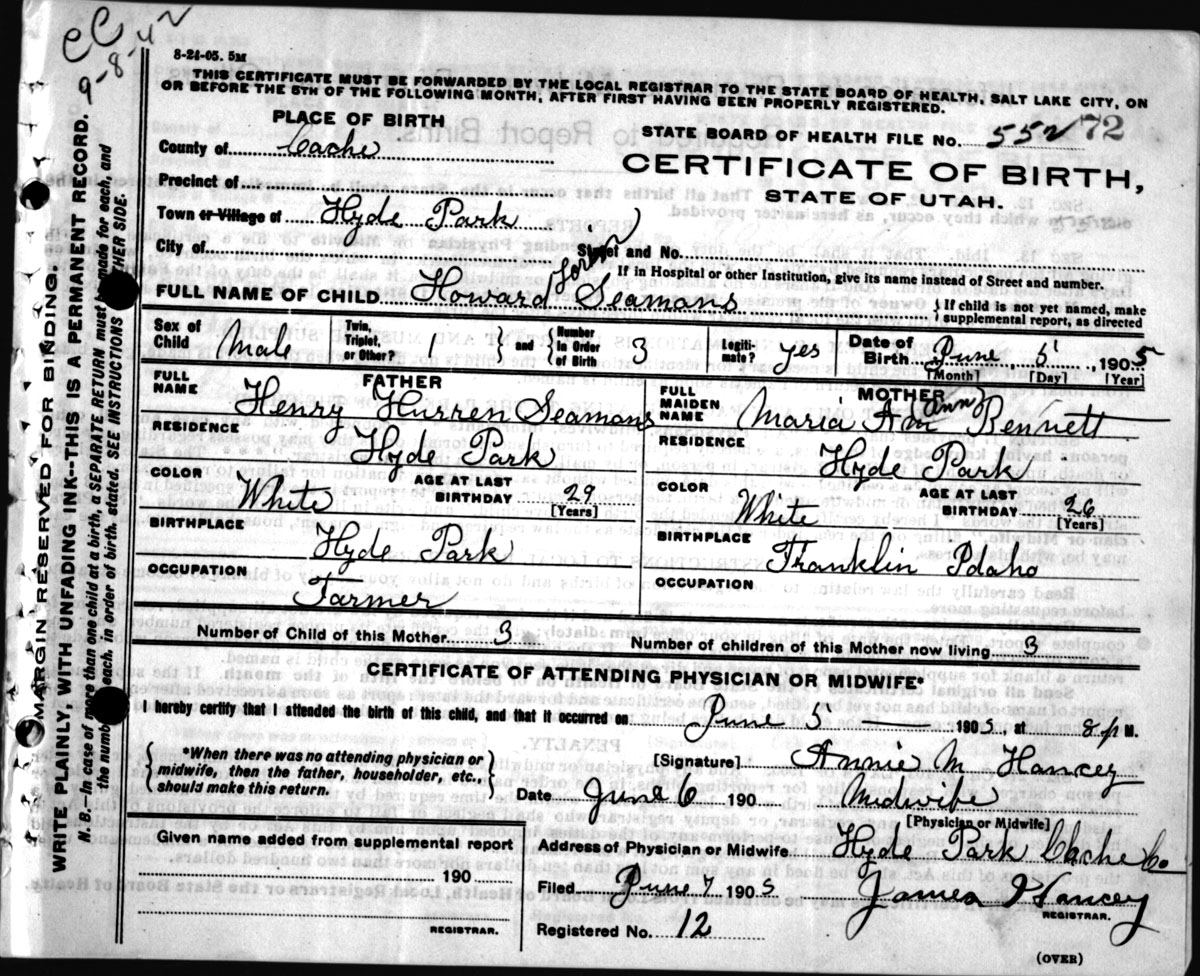 CC
9-8-42
8-21-05. 5M
THIS CERTIFICATE MUST BE FORWARDED BY THE LOCAL REGISTRAR TO THE STATE BOARD OF HEALTH, SALT LAKE CITY, ON
OR BEFORE THE 5TH OF THE FOLLOWING MONTH, AFTER FIRST HAVING BEEN PROPERLY REGISTERED.
PLACE OF BIRTH
STATE BOARD OF HEALTH FILE NO. 552 72
County of Cache
CERTIFICATE OF BIRTH,
STATE OF UTAH.
Precinct of
Town or Village of Hyde Park
City of
Street and No.
If in Hospital or other Institution, give its name instead of Street and number.
FULL NAME OF CHILD Howard Seamons
If child is not yet named, make
supplemental report, as directed
Sex of Child Male
Twin, Triplet, or Other? 1
and
Number in Order of Birth 3
Legitimate? yes
Date of Birth June 5, 1905
[Month] [Day] [Year]
FATHER
FULL NAME Henry Hurren Seamons
RESIDENCE Hyde Park
COLOR White
AGE AT LAST BIRTHDAY 29
[Years]
BIRTHPLACE
Hyde Park
OCCUPATION
Farmer
MOTHER
FULL MAIDEN NAME Maria Ann Bennett
RESIDENCE
Hyde Park
COLOR White
AGE AT LAST BIRTHDAY 26
[Years]
BIRTHPLACE
Franklin Idaho
OCCUPATION
Number of Child of this Mother 3
Number of children of this Mother now living 3
CERTIFICATE OF ATTENDING PHYSICIAN OR MIDWIFE*
I hereby certify that I attended the birth of this child, and that it occurred on June 5 1905, at 8 p M.
*When there was no attending physician or
midwife, then the father, householder, etc.,
should make this return.
[Signature] Annie M Hancey
Date June 6 190 Midwife
[Physician or Midwife]
Given name added from supplemental report
190
REGISTRAR.
Address of Physician or Midwife Hyde Park Cache Co
Filed June 7 1905 James Hancey
REGISTRAR.
Registered No. 12
(OVER)
MARGIN RESERVED FOR BINDING.
WRITE PLAINLY, WITH UNFADING INK--THIS IS A PERMANENT RECORD.
N. B.--In case of more than one child at a birth, a SEPARATE RETURN must be made for each, and
the number each, in order of birth, stated. SEE INSTRUCTIONS OTHER SIDE.